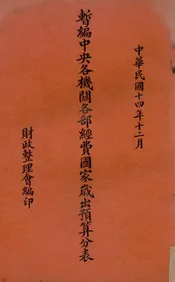 中華民國十四年十二月
暫編中央各機關各部經費國家歲出預算分表
財政整理會編印